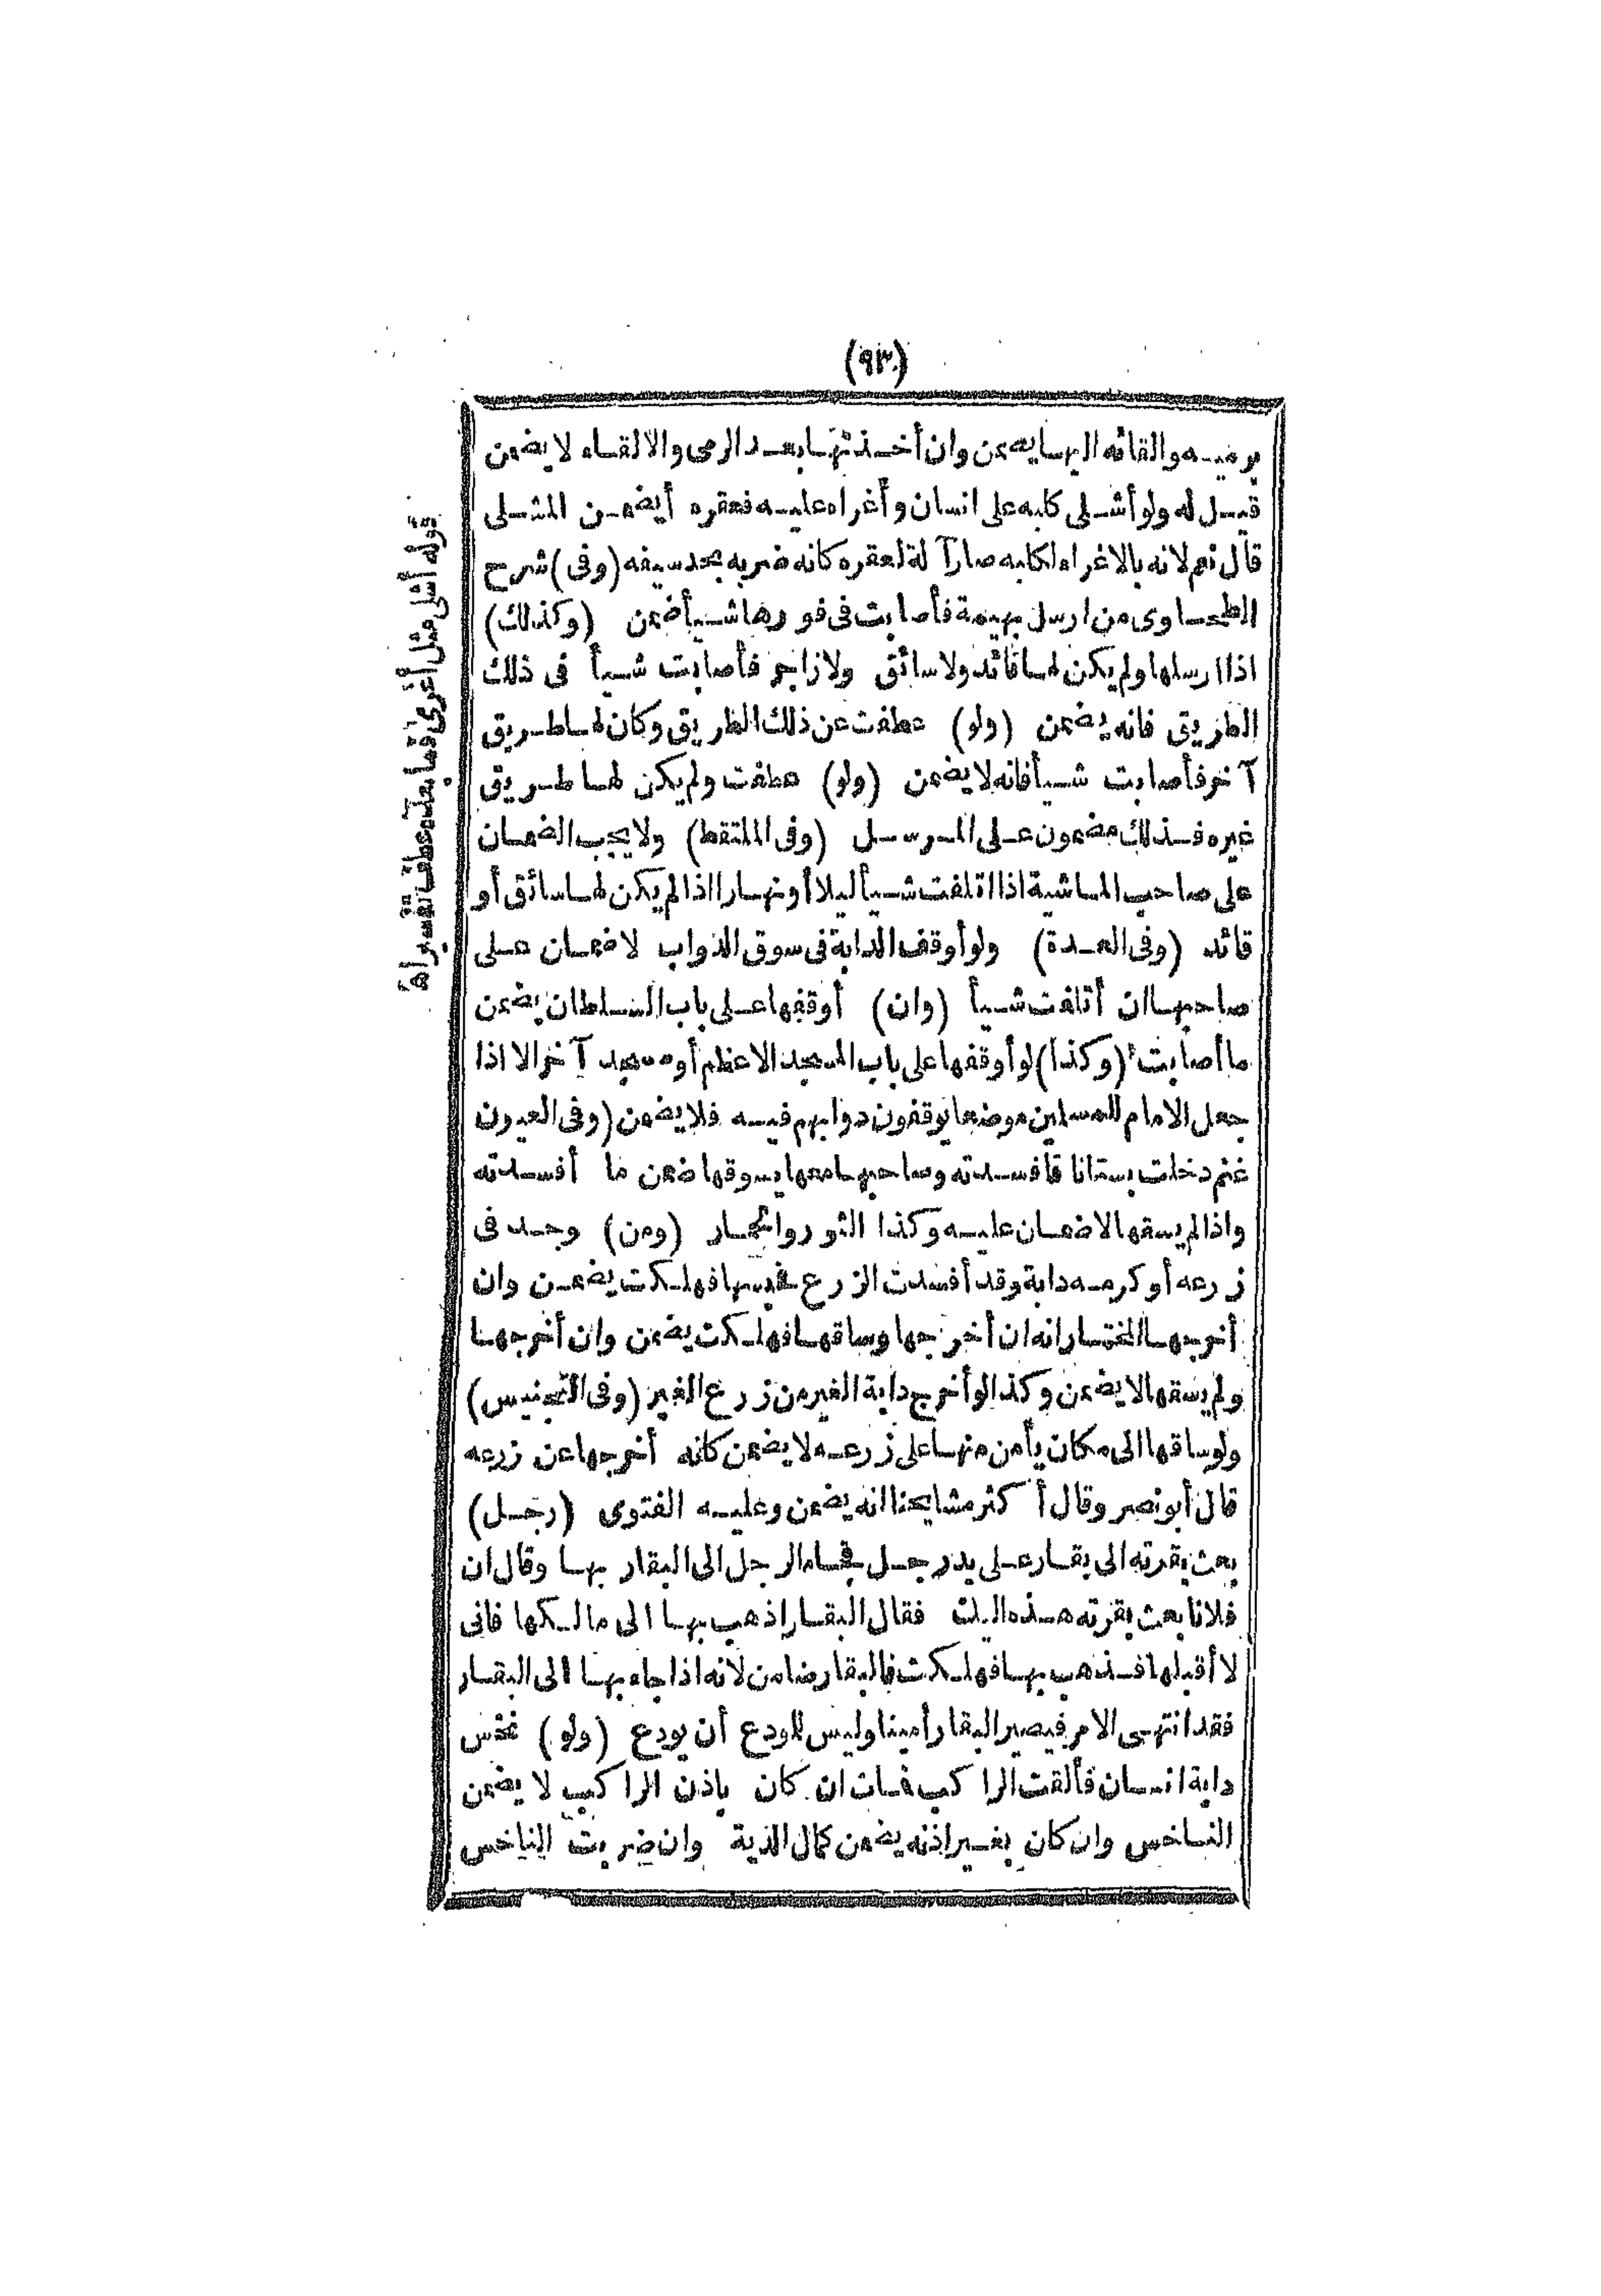 (٩٣)
برميه والقائه اليها يضمن وان أخذتها بعد الرمى والالقاء لا يضمن
قيل له ولو أشلى كلبه على انسان وأغراه عليه فعقره أيضمن المشلى
قال نعم لانه بالاغراء لكلبه صار آلة لعقره كانه ضربه بحد سيفه (وفى) شرح
الطحاوى من ارسل بهيمة فأصابت فى فورها شيأ ضمن (وكذلك)
اذا ارسلها ولم يكن لها قائد ولا سائق ولا زاجر فأصابت شيأ فى ذلك
الطريق فانه يضمن (ولو) عطفت عن ذلك الطريق وكان لها طريق
آخر فأصابت شيأ فانه لا يضمن (ولو) عطفت ولم يكن لها طريق
غيره فذلك مضمون على المرسل (وفى الملتقط) ولا يجب الضمان
على صاحب الماشية اذا اتلفت شيأ ليلا أو نهارا اذا لم يكن لها سائق أو
قائد (وفى العمدة) ولو أوقف الدابة فى سوق الدواب لا ضمان على
صاحبها ان أتلفت شيأ (وان) أوقفها على باب السلطان يضمن
ما أصابت (وكذا) لو أوقفها على باب المسجد الاعظم أو مسجد آخر الا اذا
جعل الامام للمسلمين موضعا يوقفون دوابهم فيه فلا يضمن (وفى العيون
غنم دخلت بستانا فافسدته وصاحبها معها يسوقها ضمن ما أفسدته
واذا لم يسقها لا ضمان عليه وكذا الثور والحمار (ومن) وجد فى
زرعه أو كرمه دابة وقد أفسدت الزرع فحبسها فهلكت يضمن وان
أخرجها المختار انه ان أخرجها وساقها فهلكت يضمن وان أخرجها
ولم يسقها لا يضمن وكذا لو أخرج دابة الغير من زرع الغير (وفى التجنيس)
ولو ساقها الى مكان يأمن منها على زرعه لا يضمن كانه أخرجها عن زرعه
قال أبو نصر وقال أكثر مشايخنا انه يضمن وعليه الفتوى (رجل)
بعث بقرته الى بقار على يد رجل فجاء الرجل الى البقار بها وقال ان
فلانا بعث بقرته هذه اليك فقال البقار اذهب بها الى مالكها فانى
لا أقبلها فذهب بها فهلكت فالبقار ضامن لانه اذا جاء بها الى البقار
فقد انتهى الامر فيصير البقار أمينا وليس للمودع أن يودع (ولو) نخس
دابة انسان فألقت الراكب فمات ان كان باذن الراكب لا يضمن
الناخس وان كان بغير اذنه يضمن كمال الدية وان ضربت الناخس
قوله أشلى مثل أغرى فما بعده عطف تفسير اه